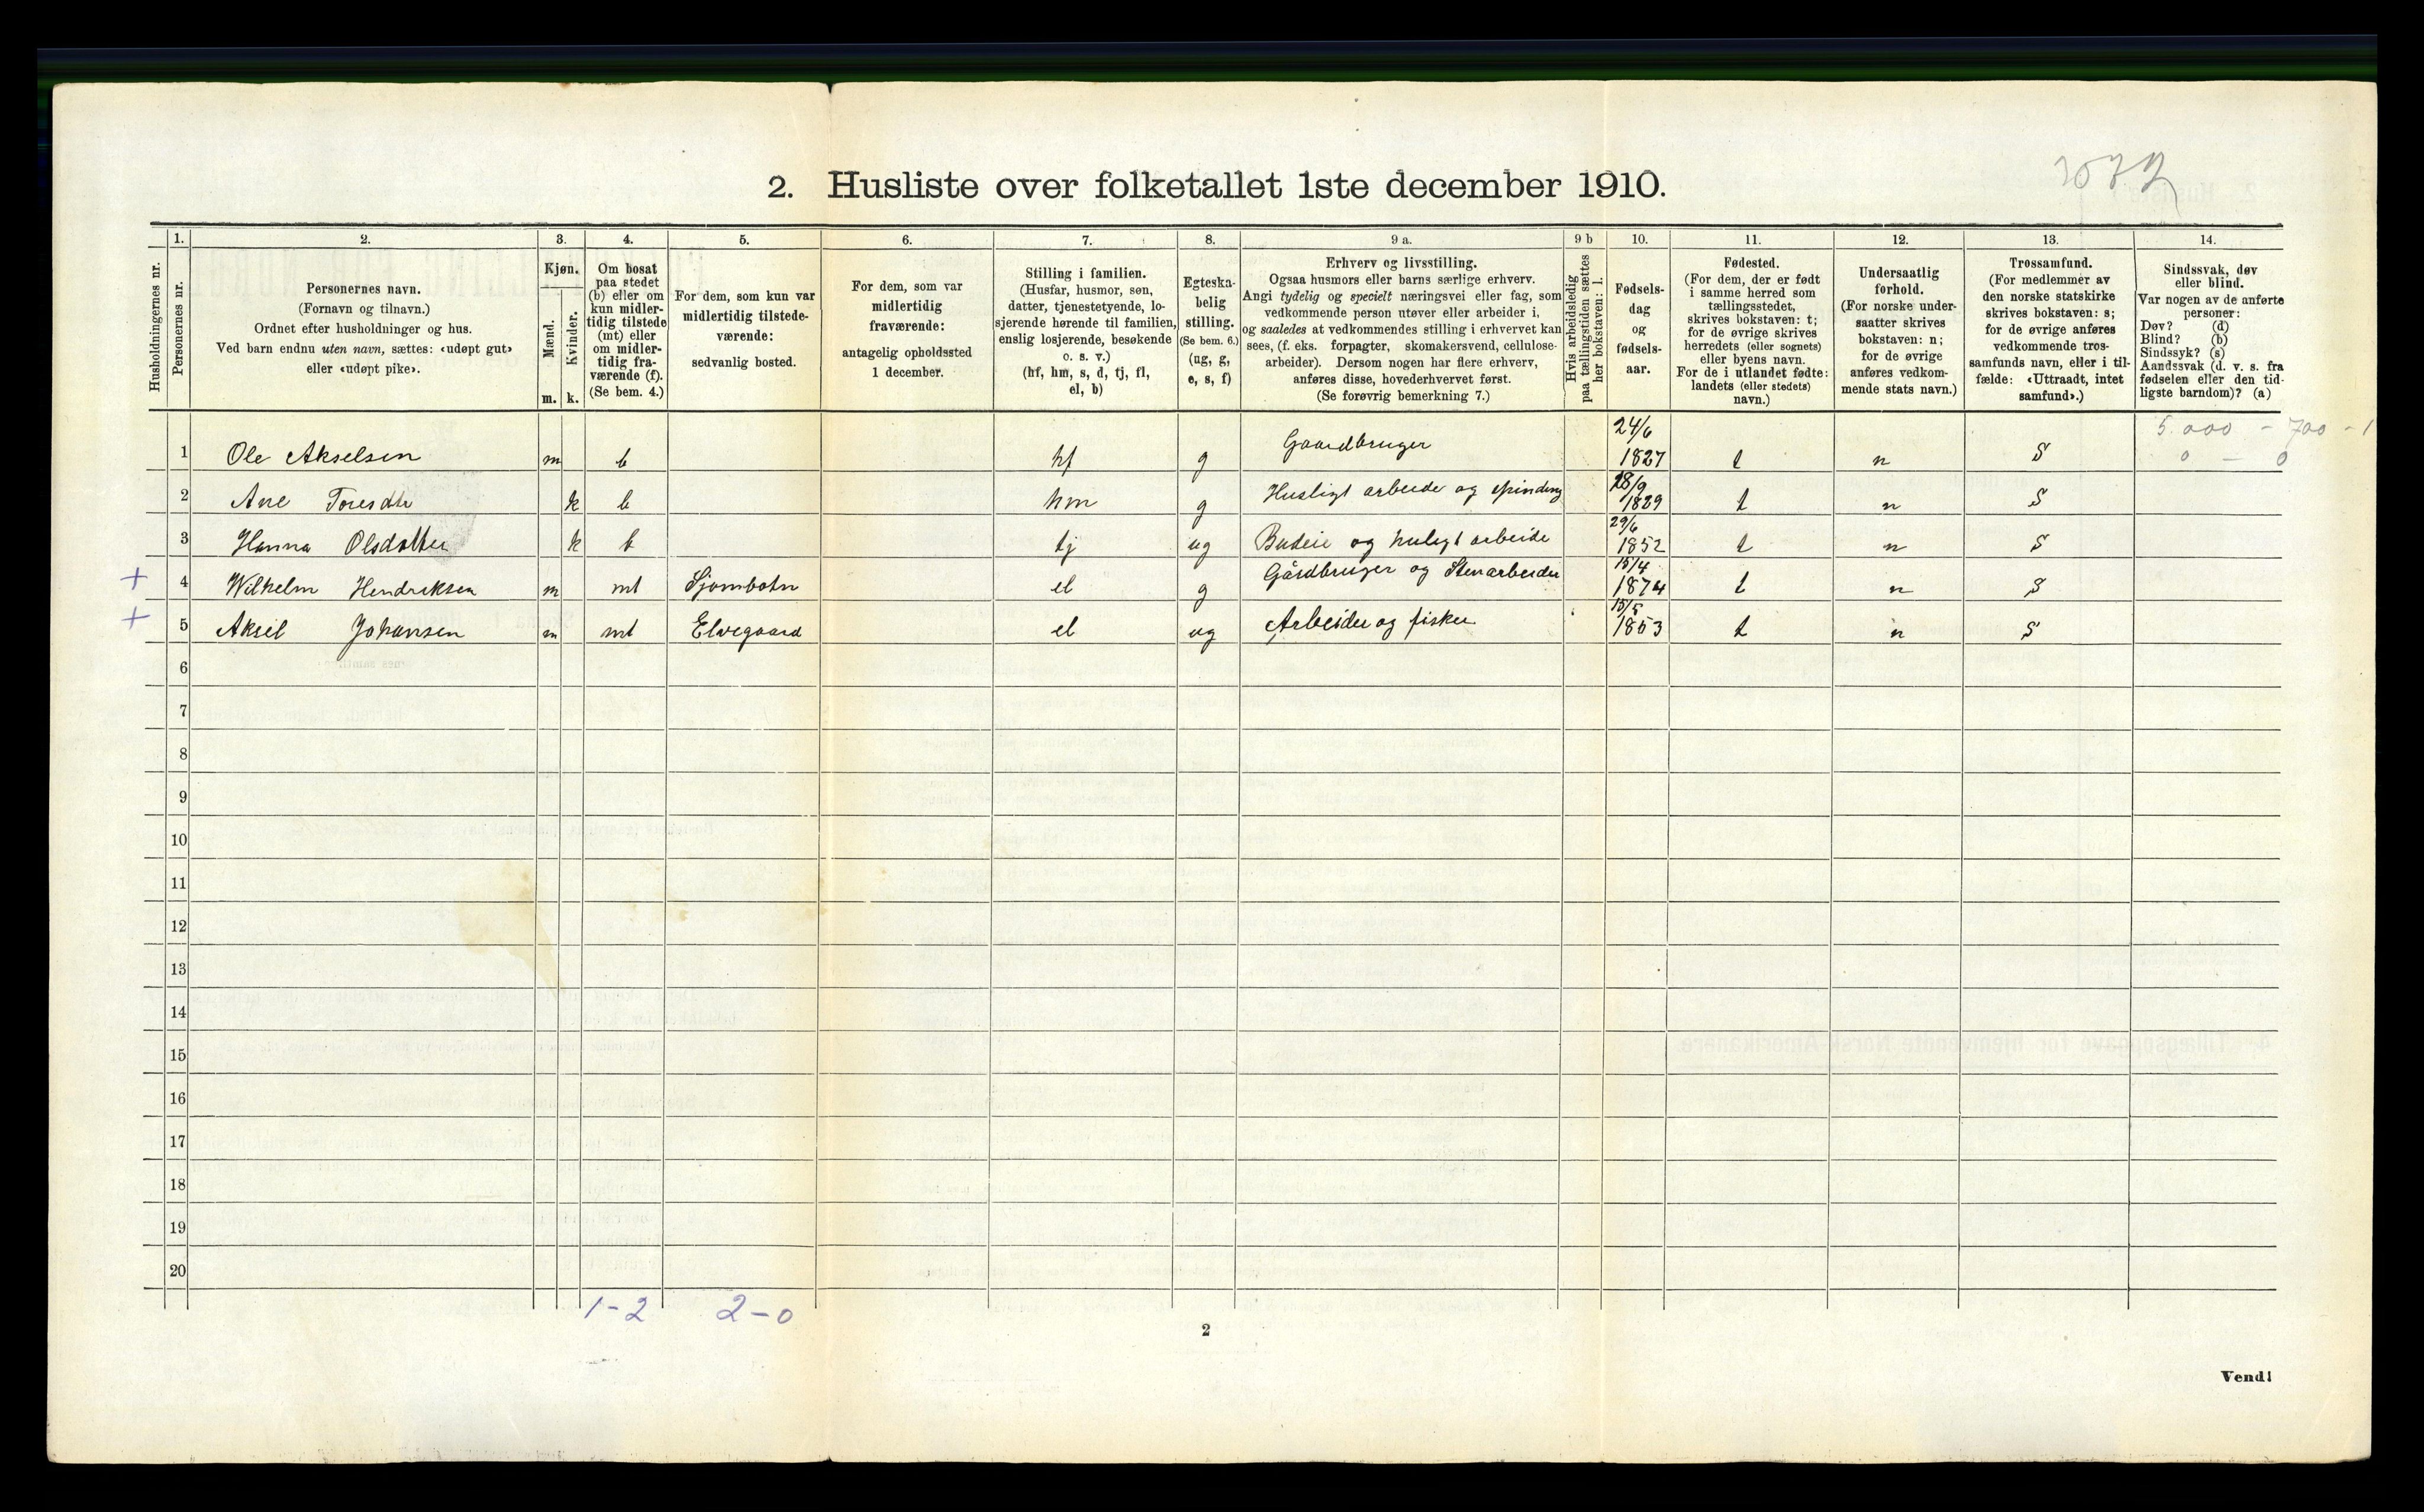 2. Husliste over folketallet 1ste december 1910.
1. 2. 3. 4. 5. 6. 7. 8. 9 a. 9 b 10. 11. 12. 13. 14.
Husholdningernes nr.
Personernes nr.
Personernes navn.
(Fornavn og tilnavn.)
Ordnet efter husholdninger og hus.
Ved barn endnu uten navn, sættes: «udøpt gut»
eller «udøpt pike».
Kjøn.
Mænd.
Kvinder.
m. k.
Om bosat
paa stedet
(b) eller om
kun midler-
tidig tilstede
(mt) eller
om midler-
tidig fra-
værende (f).
(Se bem. 4.)
For dem, som kun var
midlertidig tilstede-
værende:
sedvanlig bosted.
For dem, som var
midlertidig
fraværende:
antagelig opholdssted
1 december.
Stilling i familien.
(Husfar, husmor, søn,
datter, tjenestetyende, lo-
sjerende hørende til familien,
enslig losjerende, besøkende
o. s. v.)
(hf, hm, s, d, tj, fl,
el, b)
Egteska-
belig
stilling.
(Se bem. 6.)
(ug, g,
e, s, f)
Erhverv og livsstilling.
Ogsaa husmors eller barns særlige erhverv.
Angi tydelig og specielt næringsvei eller fag, som
vedkommende person utøver eller arbeider i,
og saaledes at vedkommendes stilling i erhvervet kan
sees, (f. eks. forpagter, skomakersvend, cellulose-
arbeider). Dersom nogen har flere erhverv,
anføres disse, hovederhvervet først.
(Se forøvrig bemerkning 7.)
Hvis arbeidsledig
paa tællingstiden sættes
her bokstaven: l.
Fødsels-
dag
og
fødsels-
aar.
Fødested.
(For dem, der er født
i samme herred som
tællingsstedet,
skrives bokstaven: t;
for de øvrige skrives
herredets (eller sognets)
eller byens navn.
For de i utlandet fødte:
landets (eller stedets)
navn.)
Undersaatlig
forhold.
(For norske under-
saatter skrives
bokstaven: n;
for de øvrige
anføres vedkom-
mende stats navn.)
Trossamfund.
(For medlemmer av
den norske statskirke
skrives bokstaven: s;
for de øvrige anføres
vedkommende tros-
samfunds navn, eller i til-
fælde: «Uttraadt, intet
samfund».)
Sindssvak, døv
eller blind.
Var nogen av de anførte
personer:
Døv? (d)
Blind? (b)
Sindssyk? (s)
Aandssvak (d. v. s. fra
fødselen eller den tid-
ligste barndom)? (a)
5.000 - 700 - 1
0 - 0
1 Ole Akselsen m b hf g Gaardbruger 24/6 1827 t n S
2 Ane Toresdtr k b hm g Husligt arbeide og spinding 28/9 1829 t n S
3 Hanna Olsdatter k b tj ug Budeie og husligt arbeide 29/6 1852 t n S
+ 4 Wilhelm Hendriksen m mt Sjombotn el g Gårdbruger og Stenarbeider 15/4 1874 t n S
+ 5 Aksel Johansen m mt Elvegaard el ug Arbeider og fisker 15/5 1853 t n S
6
7
8
9
10
11
12
13
14
15
16
17
18
19
20
1-2 2-0
2
Vend!